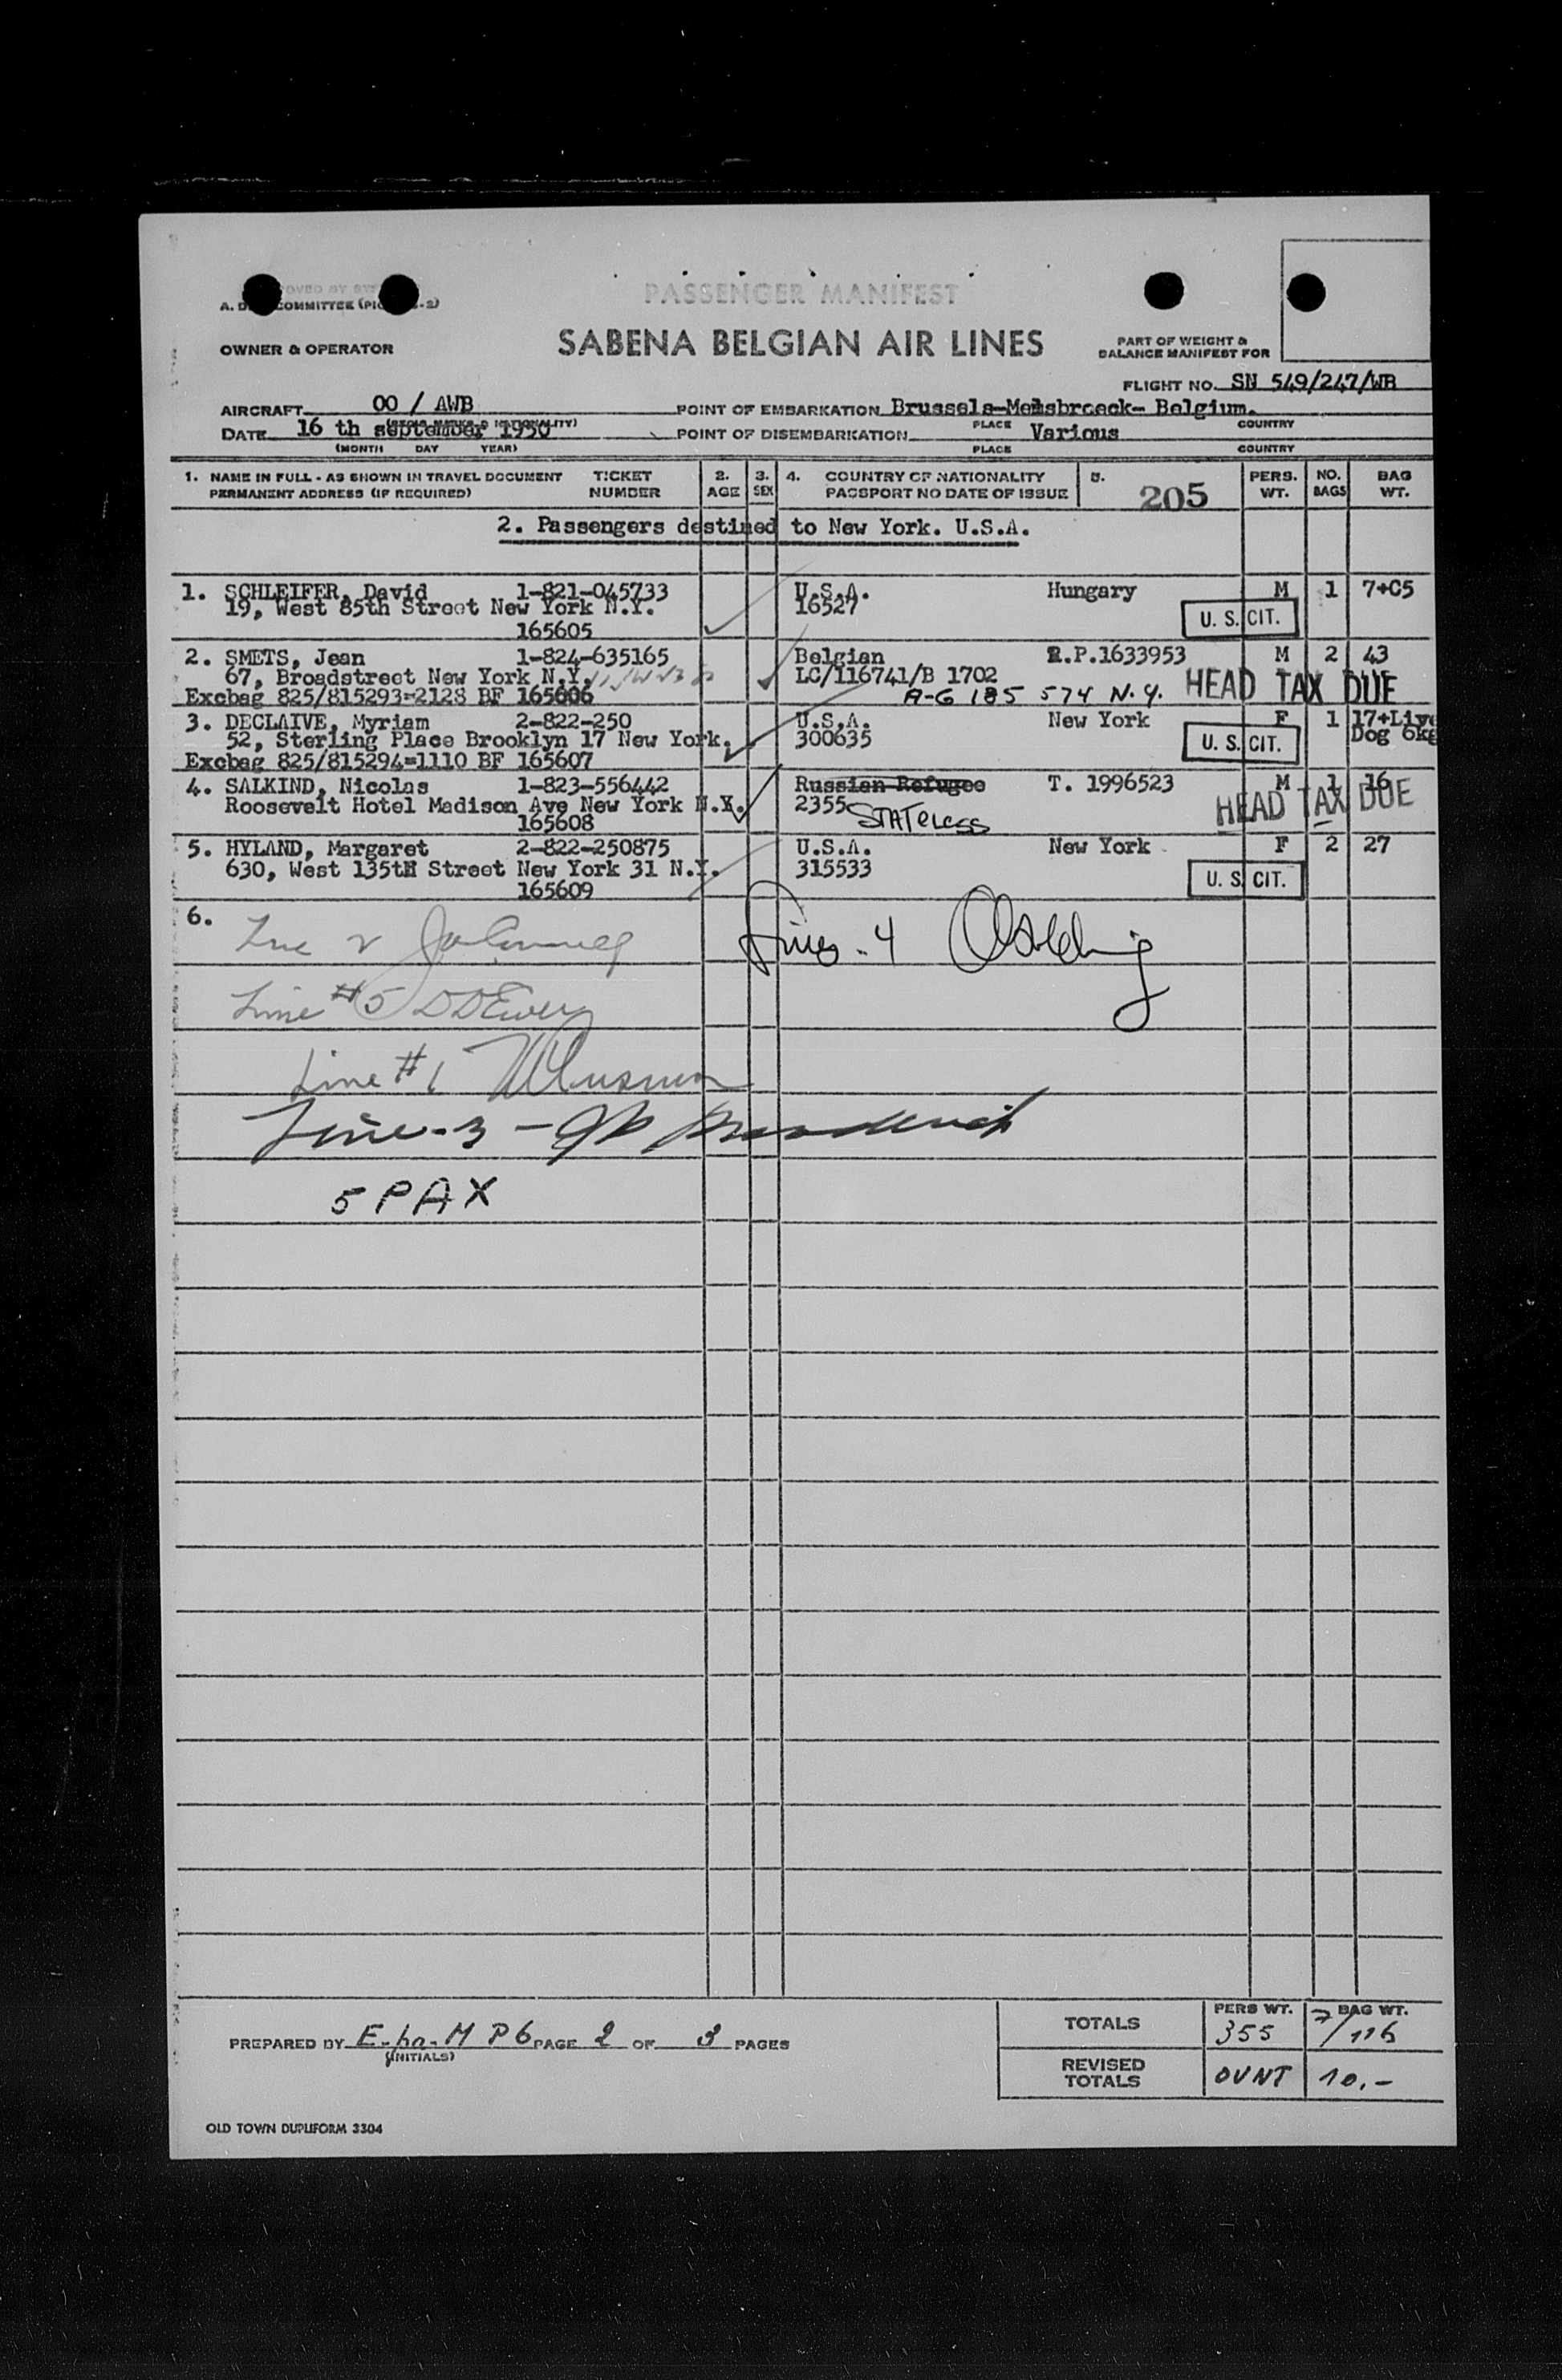 PASSENGER MANIFEST
A. D. COMMITTEE (PIC -2)
SABENA BELGIAN AIR LINES
OWNER & OPERATOR
PART OF WEIGHT &
BALANCE MANIFEST FOR
FLIGHT NO. SN 549/247/WB
AIRCRAFT OO / AWB
POINT OF EMBARKATION Brussels-Melsbroeck- Belgium.
PLACE COUNTRY
DATE 16 th september 1950
POINT OF DISEMBARKATION Various
(MONTH DAY YEAR)
PLACE COUNTRY
1. NAME IN FULL - AS SHOWN IN TRAVEL DOCUMENT TICKET 2. 3. 4. COUNTRY OF NATIONALITY 5. PERS. NO. BAG
PERMANENT ADDRESS (IF REQUIRED) NUMBER AGE SEX PASSPORT NO DATE OF ISSUE 205 WT. BAGS WT.
2. Passengers destined to New York. U.S.A.
1. SCHLEIFER, David 1-821-045733 U.S.A. Hungary M 1 7+C5
19, West 85th Street New York N.Y. 16527
U. S. CIT.
165605
2. SMETS, Jean 1-824-635165 Belgian R.P.1633953 M 2 43
67, Broadstreet New York N.Y. LC/116741/B 1702
Excbag 825/815293=2128 BF 165606 A-6 185 574 N.Y. HEAD TAX DUE
3. DECLAIVE, Myriam 2-822-250 U.S.A. New York F 1 17+Live
52, Sterling Place Brooklyn 17 New York. 300635 U. S. CIT. Dog 6kg
Excbag 825/815294=1110 BF 165607
4. SALKIND, Nicolas 1-823-556442 Russian Refugee T. 1996523 M 1 16
Roosevelt Hotel Madison Ave New York N.Y. 2355 STATELESS HEAD TAX DUE
165608
5. HYLAND, Margaret 2-822-250875 U.S.A. New York F 2 27
630, West 135th Street New York 31 N.Y. 315533
U. S. CIT.
165609
6.
Line 2
Line - 4
Line #5
Line #1
Line - 3 -
5 PAX
TOTALS PERS WT. 355 BAG WT. 7/116
PREPARED BY E.ha.M P6 PAGE 2 OF 3 PAGES
(INITIALS)
REVISED
TOTALS OVNT 10.-
OLD TOWN DUPLIFORM 3304